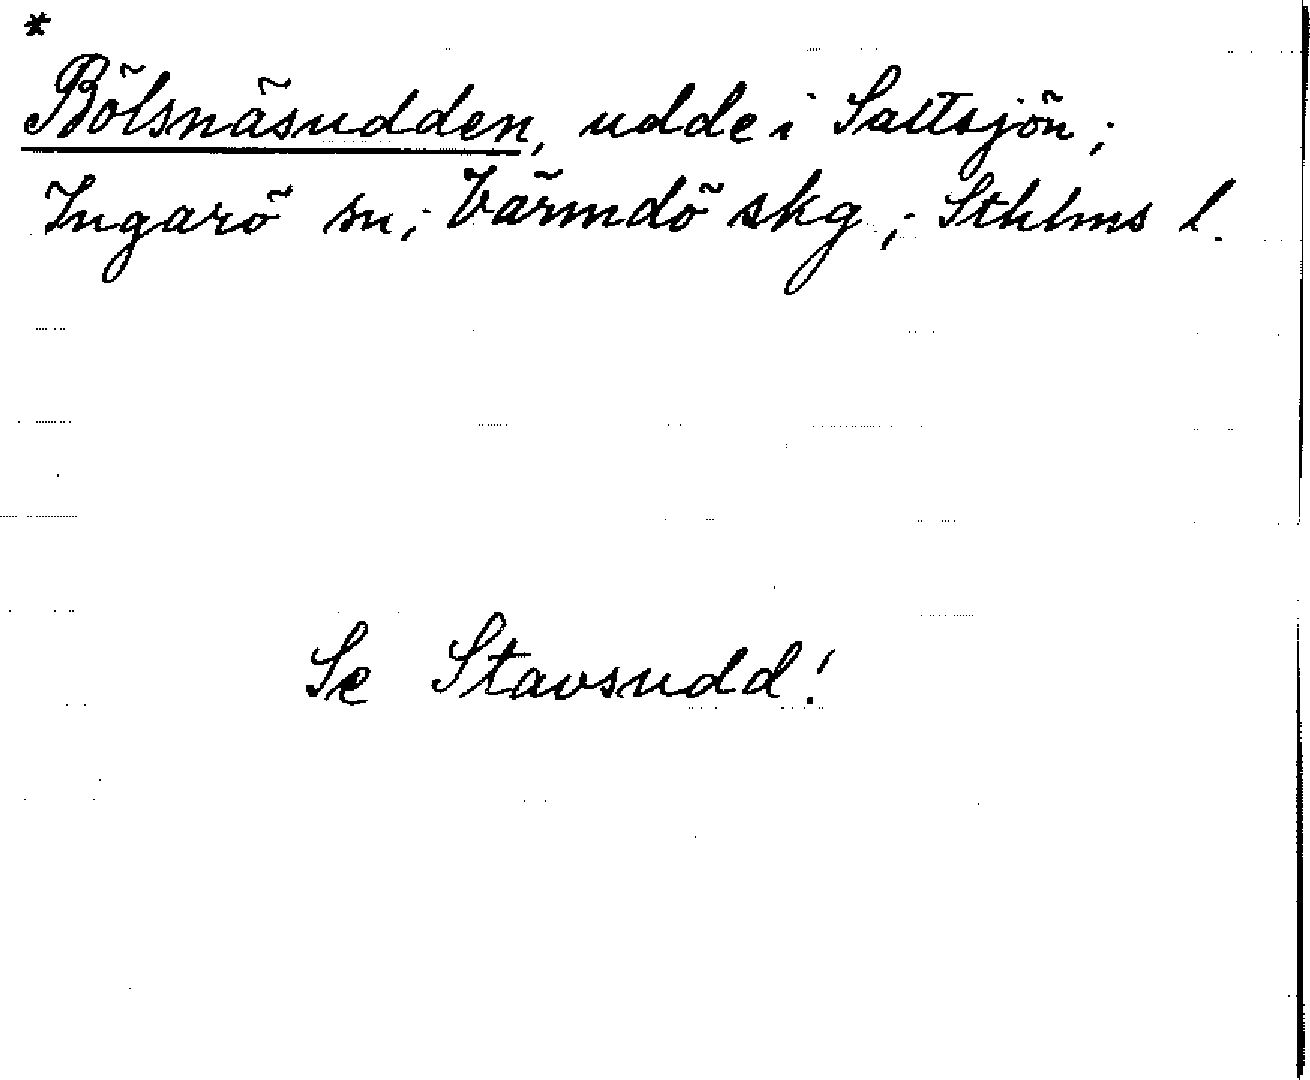 *
Bölsnäsudden, udde i Saltsjön;
Ingarö sn; Värmdö skg; Sthlms l.
Se Stavsudd!